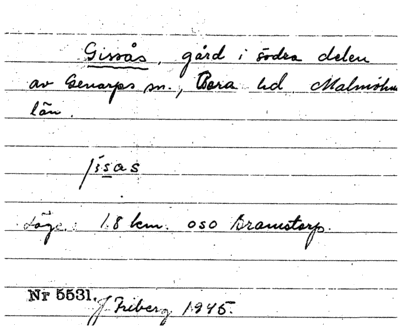 Gissås, gård i södra delen
av Genarps sn., Bara hd Malmöhus
län.
jisas
Läge: 1.8 km. oso Bramstorp.
Nr 5531.
J Friberg 1945.